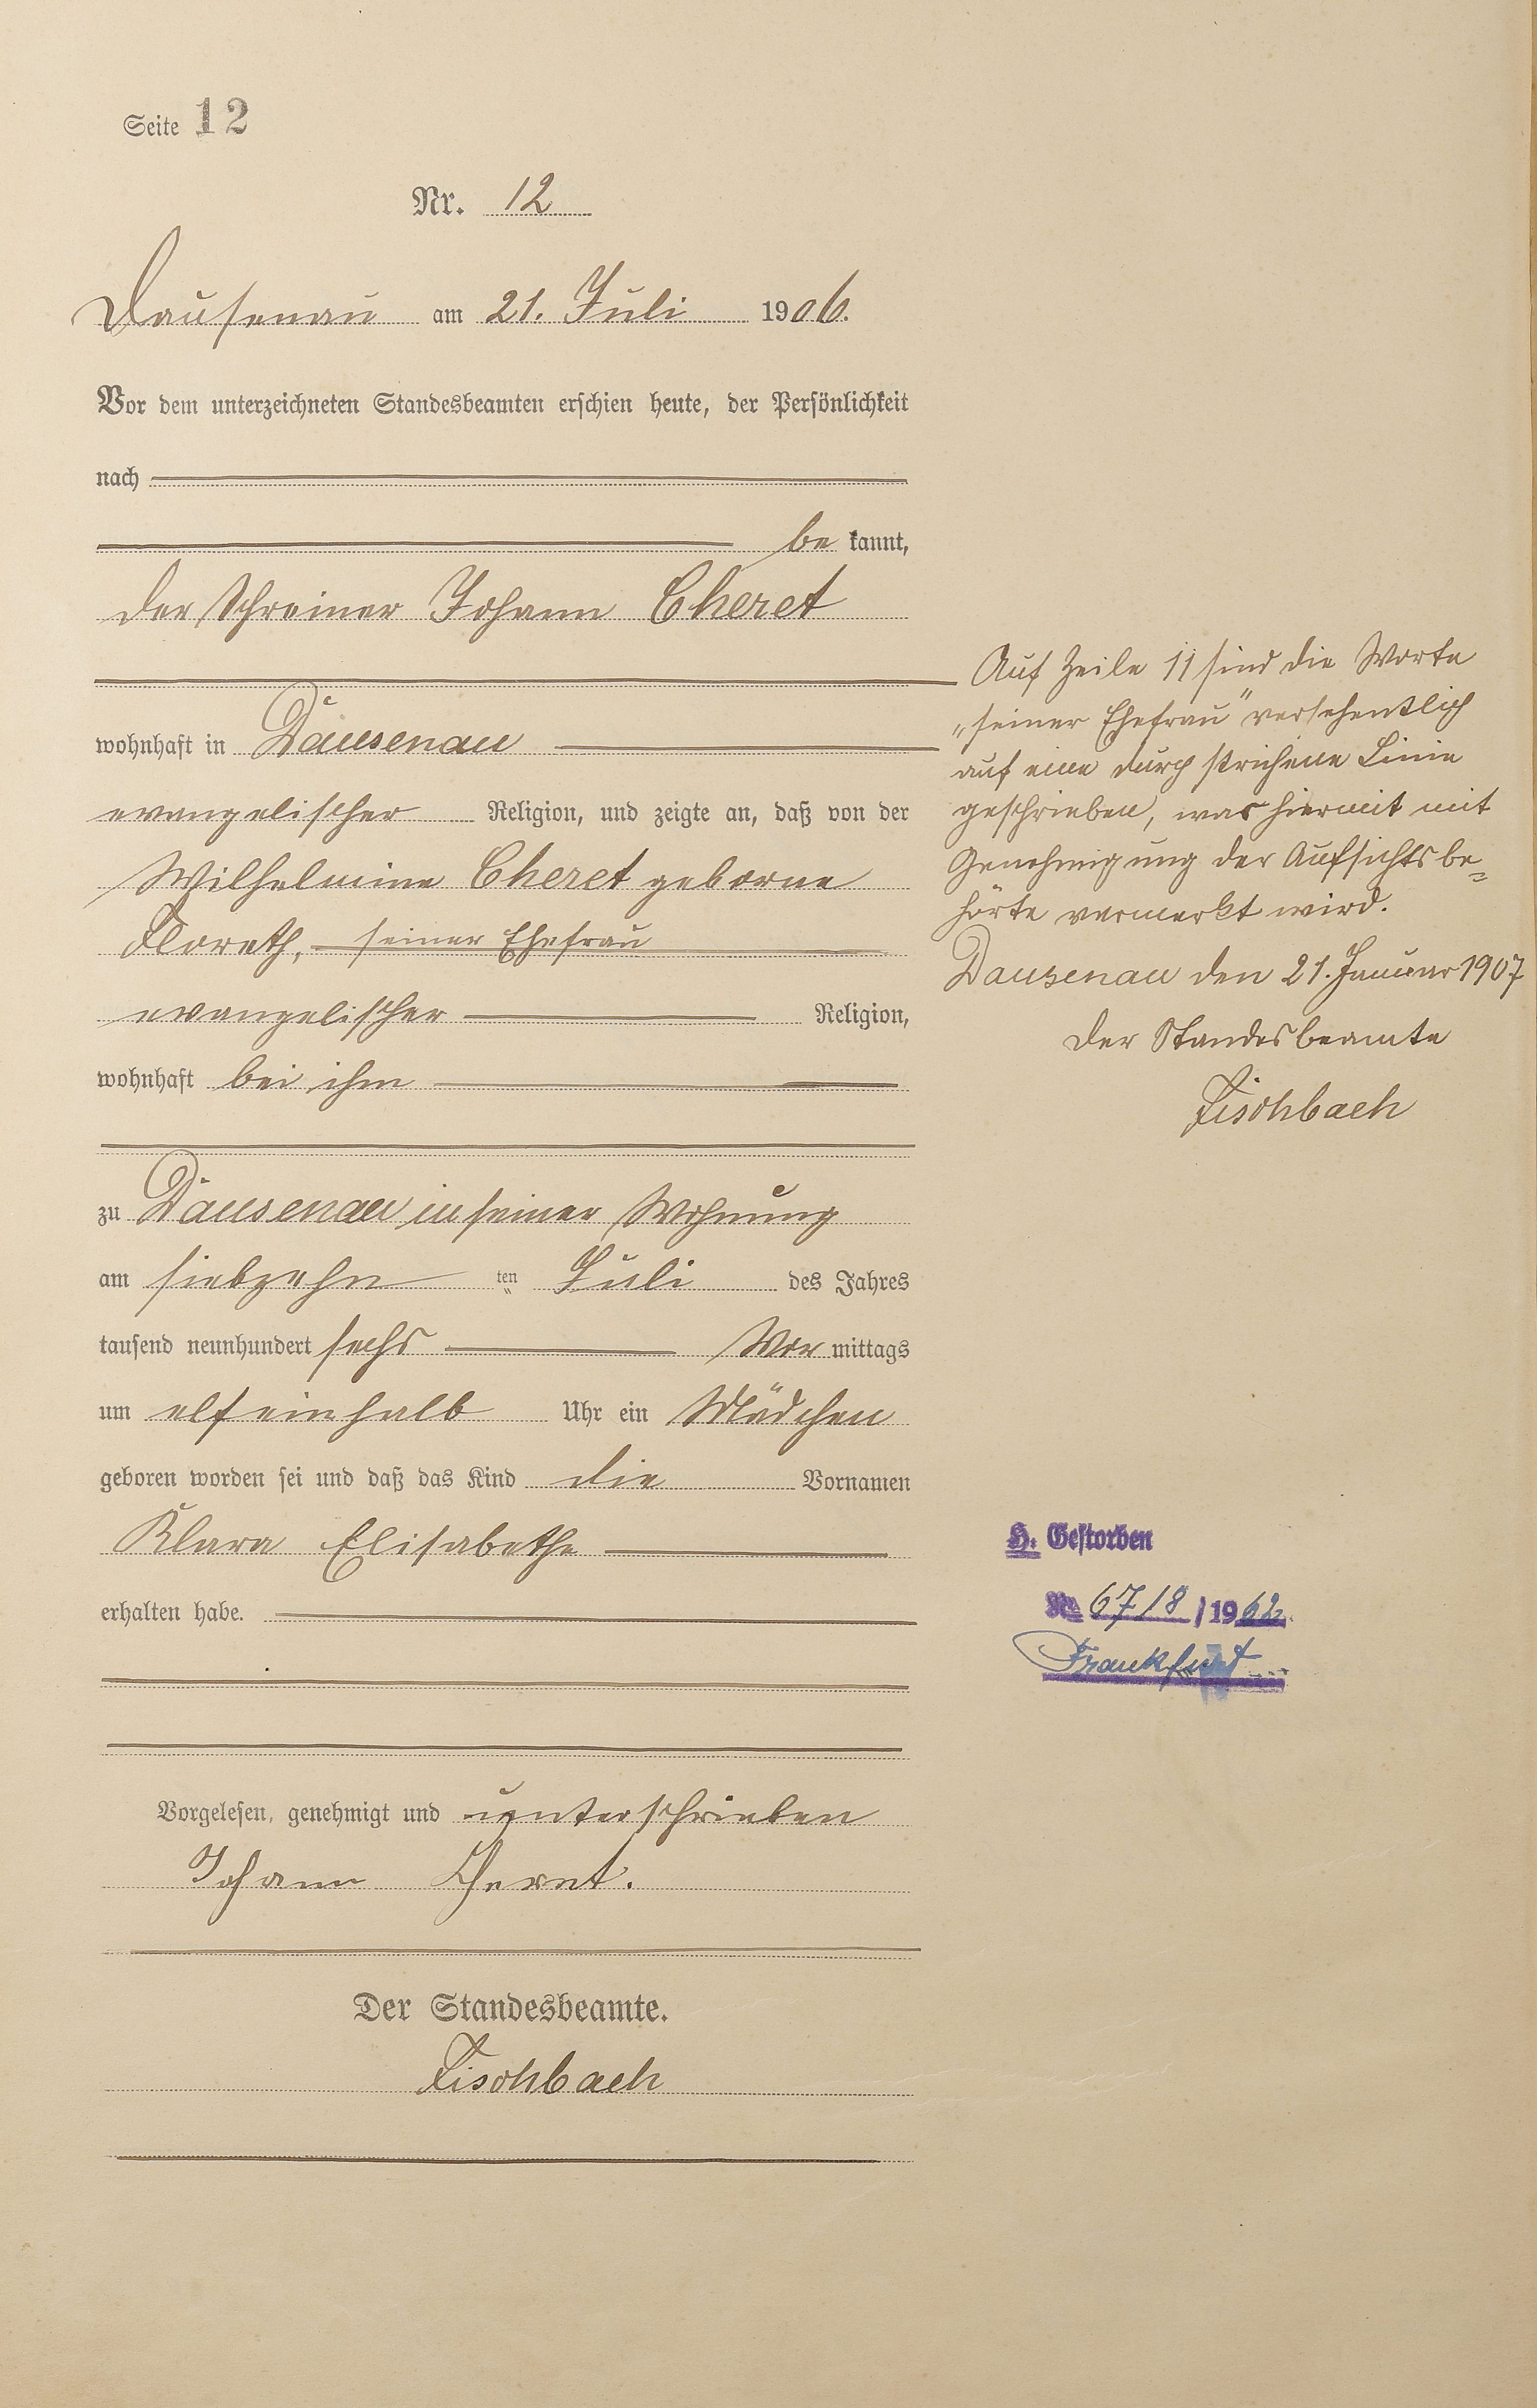 Seite 12
Nr. 12
Dausenau am 21. Juli 1906.
Vor dem unterzeichneten Standesbeamten erschien heute, der Persönlichkeit
nach
be kannt,
der Schreiner Johann Cheret
wohnhaft in Dausenau
evangelischer Religion, und zeigte an, daß von der
Wilhelmine Cheret geborne
Floreth, seiner Ehefrau
evangelischer Religion,
wohnhaft bei ihm
zu Dausenau in seiner Wohnung
am siebzehn ten Juli des Jahres
tausend neunhundert sechs Vor mittags
um elf einhalb Uhr ein Mädchen
geboren worden sei und daß das Kind die Vornamen
Klara Elisabethe
erhalten habe.
Vorgelesen, genehmigt und unterschrieben
Johann Cheret.
Der Standesbeamte.
Fischbach
Auf Zeile 11 sind die Worte
„seiner Ehefrau" versehentlich
auf eine durch strichene Linie
geschrieben, was hiermit mit
Genehmigung der Aufsichtsbe=
hörte vermerkt wird.
Dausenau den 21. Januar 1907
Der Standesbeamte
Fischbach
H. Gestorben
No 6718 / 1962
Frankfurt